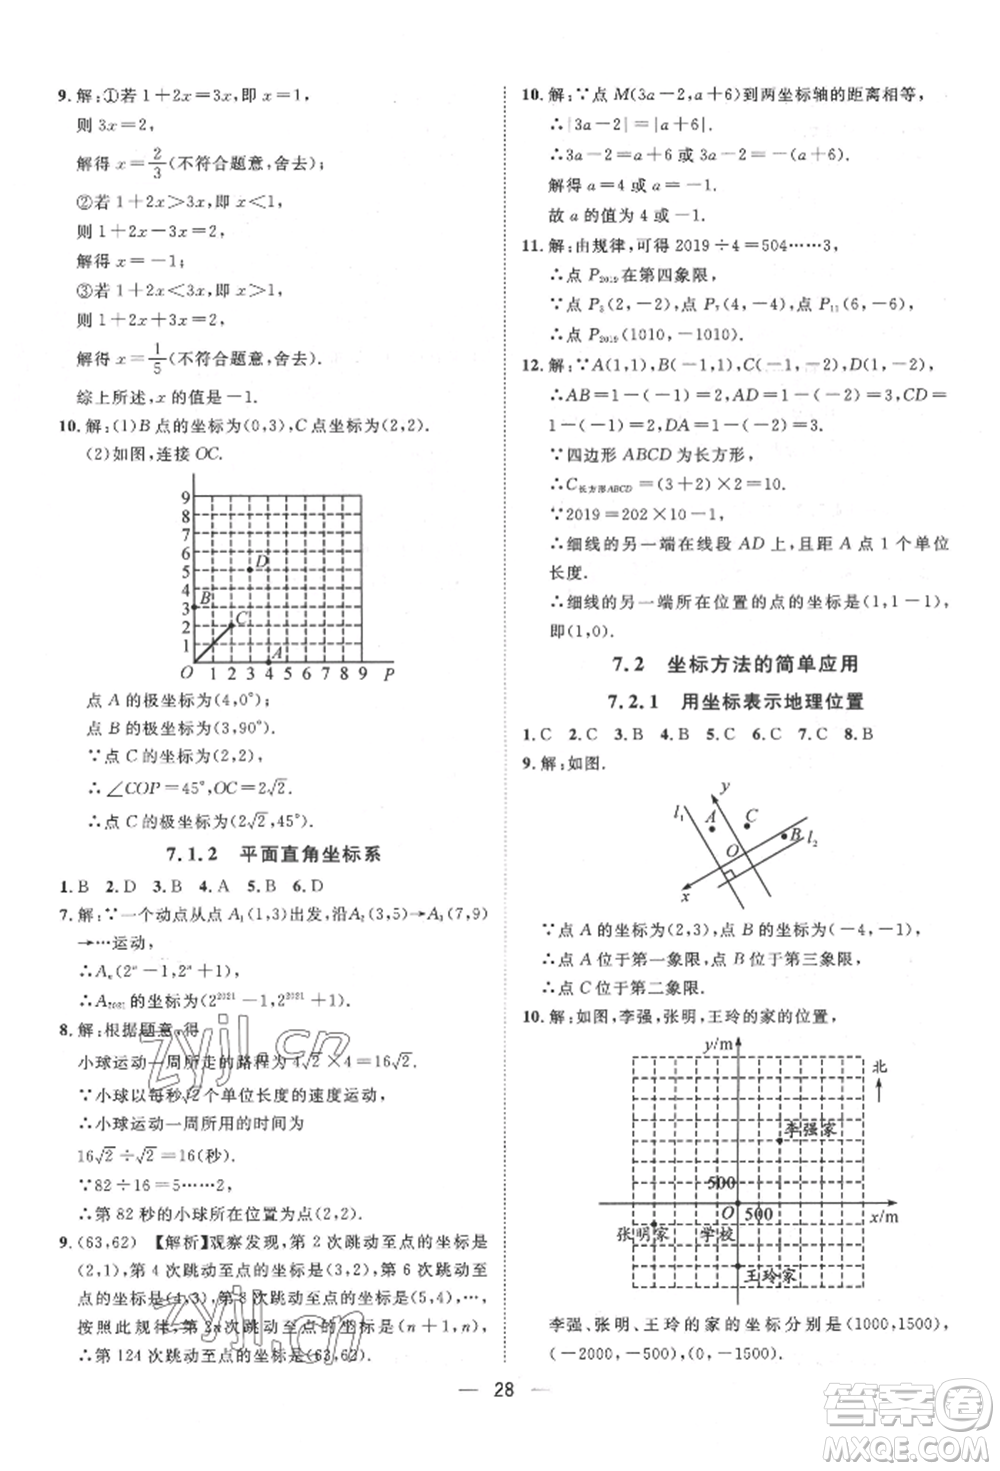 9. 解:①若 1+2x=3x,即 x=1,
则 3x=2,
解得 x=2/3(不符合题意,舍去);
②若 1+2x>3x,即 x<1,
则 1+2x-3x=2,
解得 x=-1;
③若 1+2x<3x,即 x>1,
则 1+2x+3x=2,
解得 x=1/5(不符合题意,舍去).
综上所述,x 的值是-1.
10. 解:(1)B 点的坐标为(0,3),C 点坐标为(2,2).
(2)如图,连接 OC.
9
8
7
6
5
4
3
2
1
D
B
C
A
O 1 2 3 4 5 6 7 8 9 P
点 A 的极坐标为(4,0°);
点 B 的极坐标为(3,90°);
∵点 C 的坐标为(2,2),
∴∠COP=45°,OC=2√2.
∴点 C 的极坐标为(2√2,45°).
7.1.2 平面直角坐标系
1. B 2. D 3. B 4. A 5. B 6. D
7. 解:∵一个动点从点 A₁(1,3)出发,沿A₂(3,5)→A₃(7,9)
→…运动,
∴Aₙ(2ⁿ-1,2ⁿ+1),
∴A₂₀₂₁的坐标为(2²⁰²¹-1,2²⁰²¹+1).
8. 解:根据题意,得
小球运动一周所走的路程为4√2×4=16√2.
∵小球以每秒√2个单位长度的速度运动,
∴小球运动一周所用的时间为
16√2÷√2=16(秒).
∵82÷16=5……2,
∴第 82 秒的小球所在位置为点(2,2).
9. (63,62) 【解析】观察发现,第 2 次跳动至点的坐标是
(2,1),第 4 次跳动至点的坐标是(3,2),第 6 次跳动至
点的坐标是(4,3),第 8 次跳动至点的坐标是(5,4),…,
按照此规律,第 2n 次跳动至点的坐标是(n+1,n),
∴第 124 次跳动至点的坐标是(63,62).
10. 解:∵点 M(3a-2,a+6)到两坐标轴的距离相等,
∴|3a-2|=|a+6|.
∴3a-2=a+6 或 3a-2=-(a+6).
解得 a=4 或 a=-1.
故 a 的值为 4 或-1.
11. 解:由规律,可得 2019÷4=504……3,
∴点 P₂₀₁₉在第四象限,
∵点 P₃(2,-2),点 P₇(4,-4),点 P₁₁(6,-6),
∴点 P₂₀₁₉(1010,-1010).
12. 解:∵A(1,1),B(-1,1),C(-1,-2),D(1,-2),
∴AB=1-(-1)=2,BC=1-(-2)=3,CD=
1-(-1)=2,DA=1-(-2)=3.
∵四边形 ABCD 为长方形,
∴C长方形ABCD=(3+2)×2=10.
∵2019=202×10-1,
∴细线的另一端在线段 AD 上,且距 A 点 1 个单位
长度.
∴细线的另一端所在位置的点的坐标是(1,1-1),
即(1,0).
7.2 坐标方法的简单应用
7.2.1 用坐标表示地理位置
1. C 2. C 3. B 4. B 5. C 6. C 7. C 8. B
9. 解:如图.
y
l₁
A
C
B
l₂
O
x
∵点 A 的坐标为(2,3),点 B 的坐标为(-4,-1),
∴点 A 位于第一象限,点 B 位于第三象限,
∴点 C 位于第二象限.
10. 解:如图,李强,张明,王玲的家的位置,
y/m
北
李强家
500
O 500
x/m
张明家 学校
王玲家
李强、张明、王玲的家的坐标分别是(1000,1500),
(-2000,-500),(0,-1500).
28
zyjl.cn
zyjl.cn
答案卷
MXQE.COM